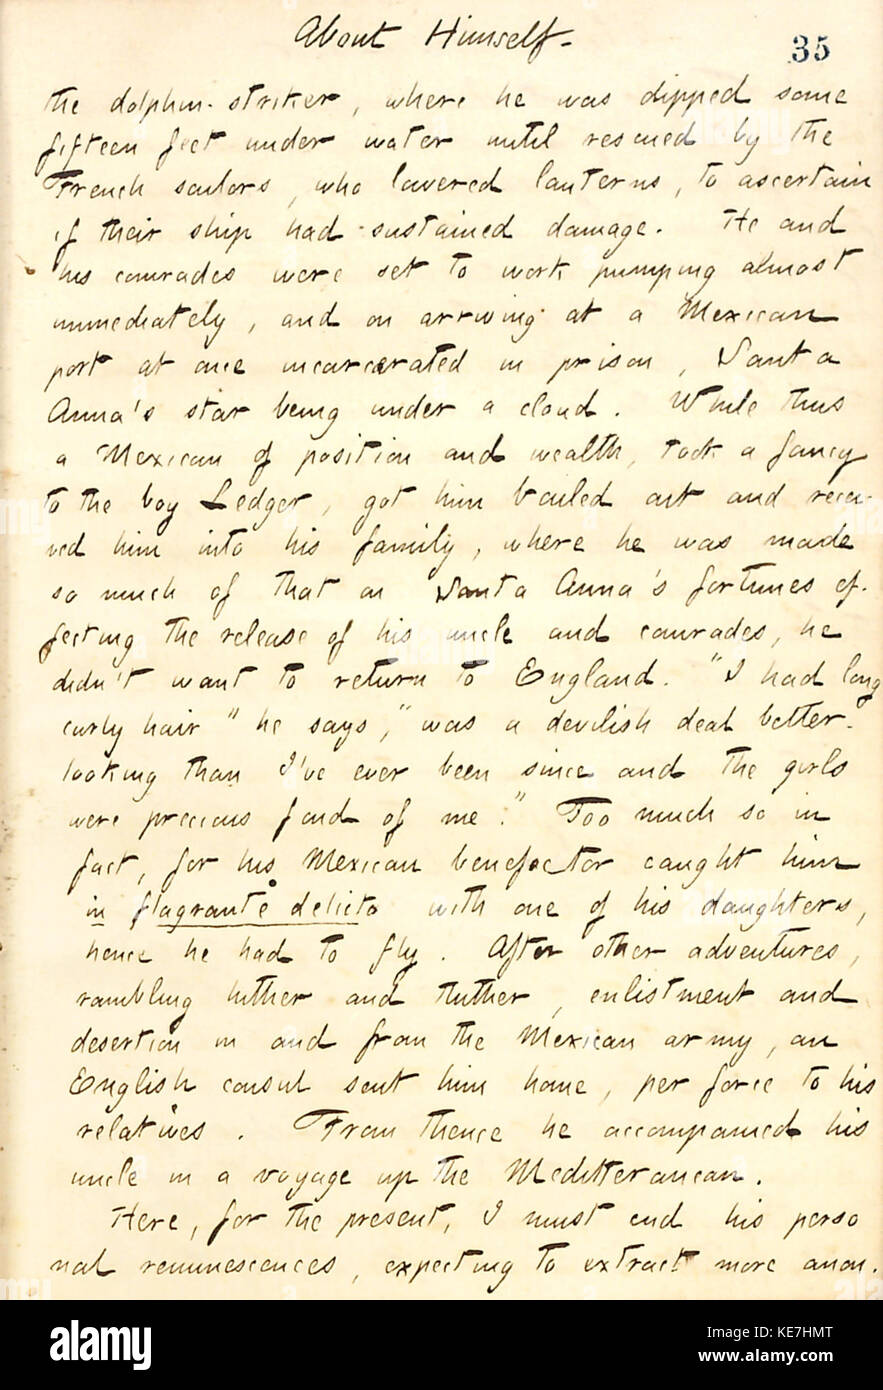 About Himself.
35
the dolphin-striker, where he was dipped some
fifteen feet under water until rescued by the
French sailors, who lowered lanterns, to ascertain
if their ship had sustained damage. He and
his comrades were set to work pumping almost
immediately, and on arriving at a Mexican
port at once incarcerated in prison, Santa
Anna's star being under a cloud. While thus
a Mexican of position and wealth, took a fancy
to the boy Ledger, got him bailed out and recei-
ved him into his family, where he was made
so much of that on Santa Anna's fortunes ef-
fecting the release of his uncle and comrades, he
didn't want to return to England. "I had long
curly hair" he says, "was a devilish deal better-
looking than I've ever been since and the girls
were precious fond of me." Too much so in
fact, for his Mexican benefactor caught him
in flagrante delicto with one of his daughters,
hence he had to fly. After other adventures,
rambling hither and thither, enlistment and
desertion in and from the Mexican army, an
English consul sent him home, per force to his
relatives. From thence he accompanied his
uncle in a voyage up the Mediterranean.
Here, for the present, I must end his perso
nal reminescences, expecting to extract more anon.
alamy
Image ID: KE7HMT
www.alamy.com